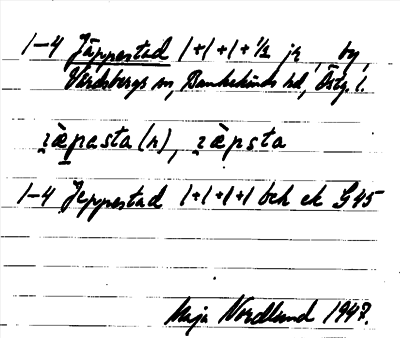 1-4 Jäppestad 1+1+1+½ jr, by,
Vårdsbergs sn, Bankekinds hd, Östg. l.
i̯æ̀pasta(r), i̯æ̀psta
1-4 Jeppestad 1+1+1+1 och ek G45
Maja Nordlund 1947.